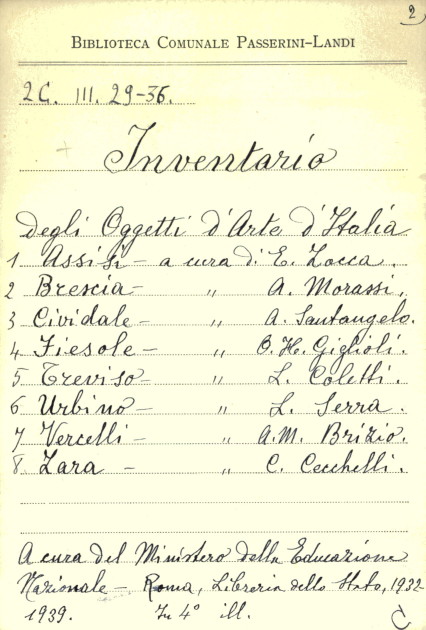 2
BIBLIOTECA COMUNALE PASSERINI-LANDI
2C. III. 29-36.
Inventario
degli Oggetti d'Arte d'Italia
1 Assisi – a cura di E. Zocca.
2 Brescia – " A. Morassi.
3 Cividale – " A. Santangelo.
4 Fiesole – " O. H. Giglioli.
5 Treviso – " L. Coletti.
6 Urbino – " L. Serra.
7 Vercelli – " A. M. Brizio.
8 Zara – " C. Cecchelli.
A cura del Ministero della Educazione
Nazionale – Roma, Libreria dello Stato, 1932-
1939. In 4° ill.
C